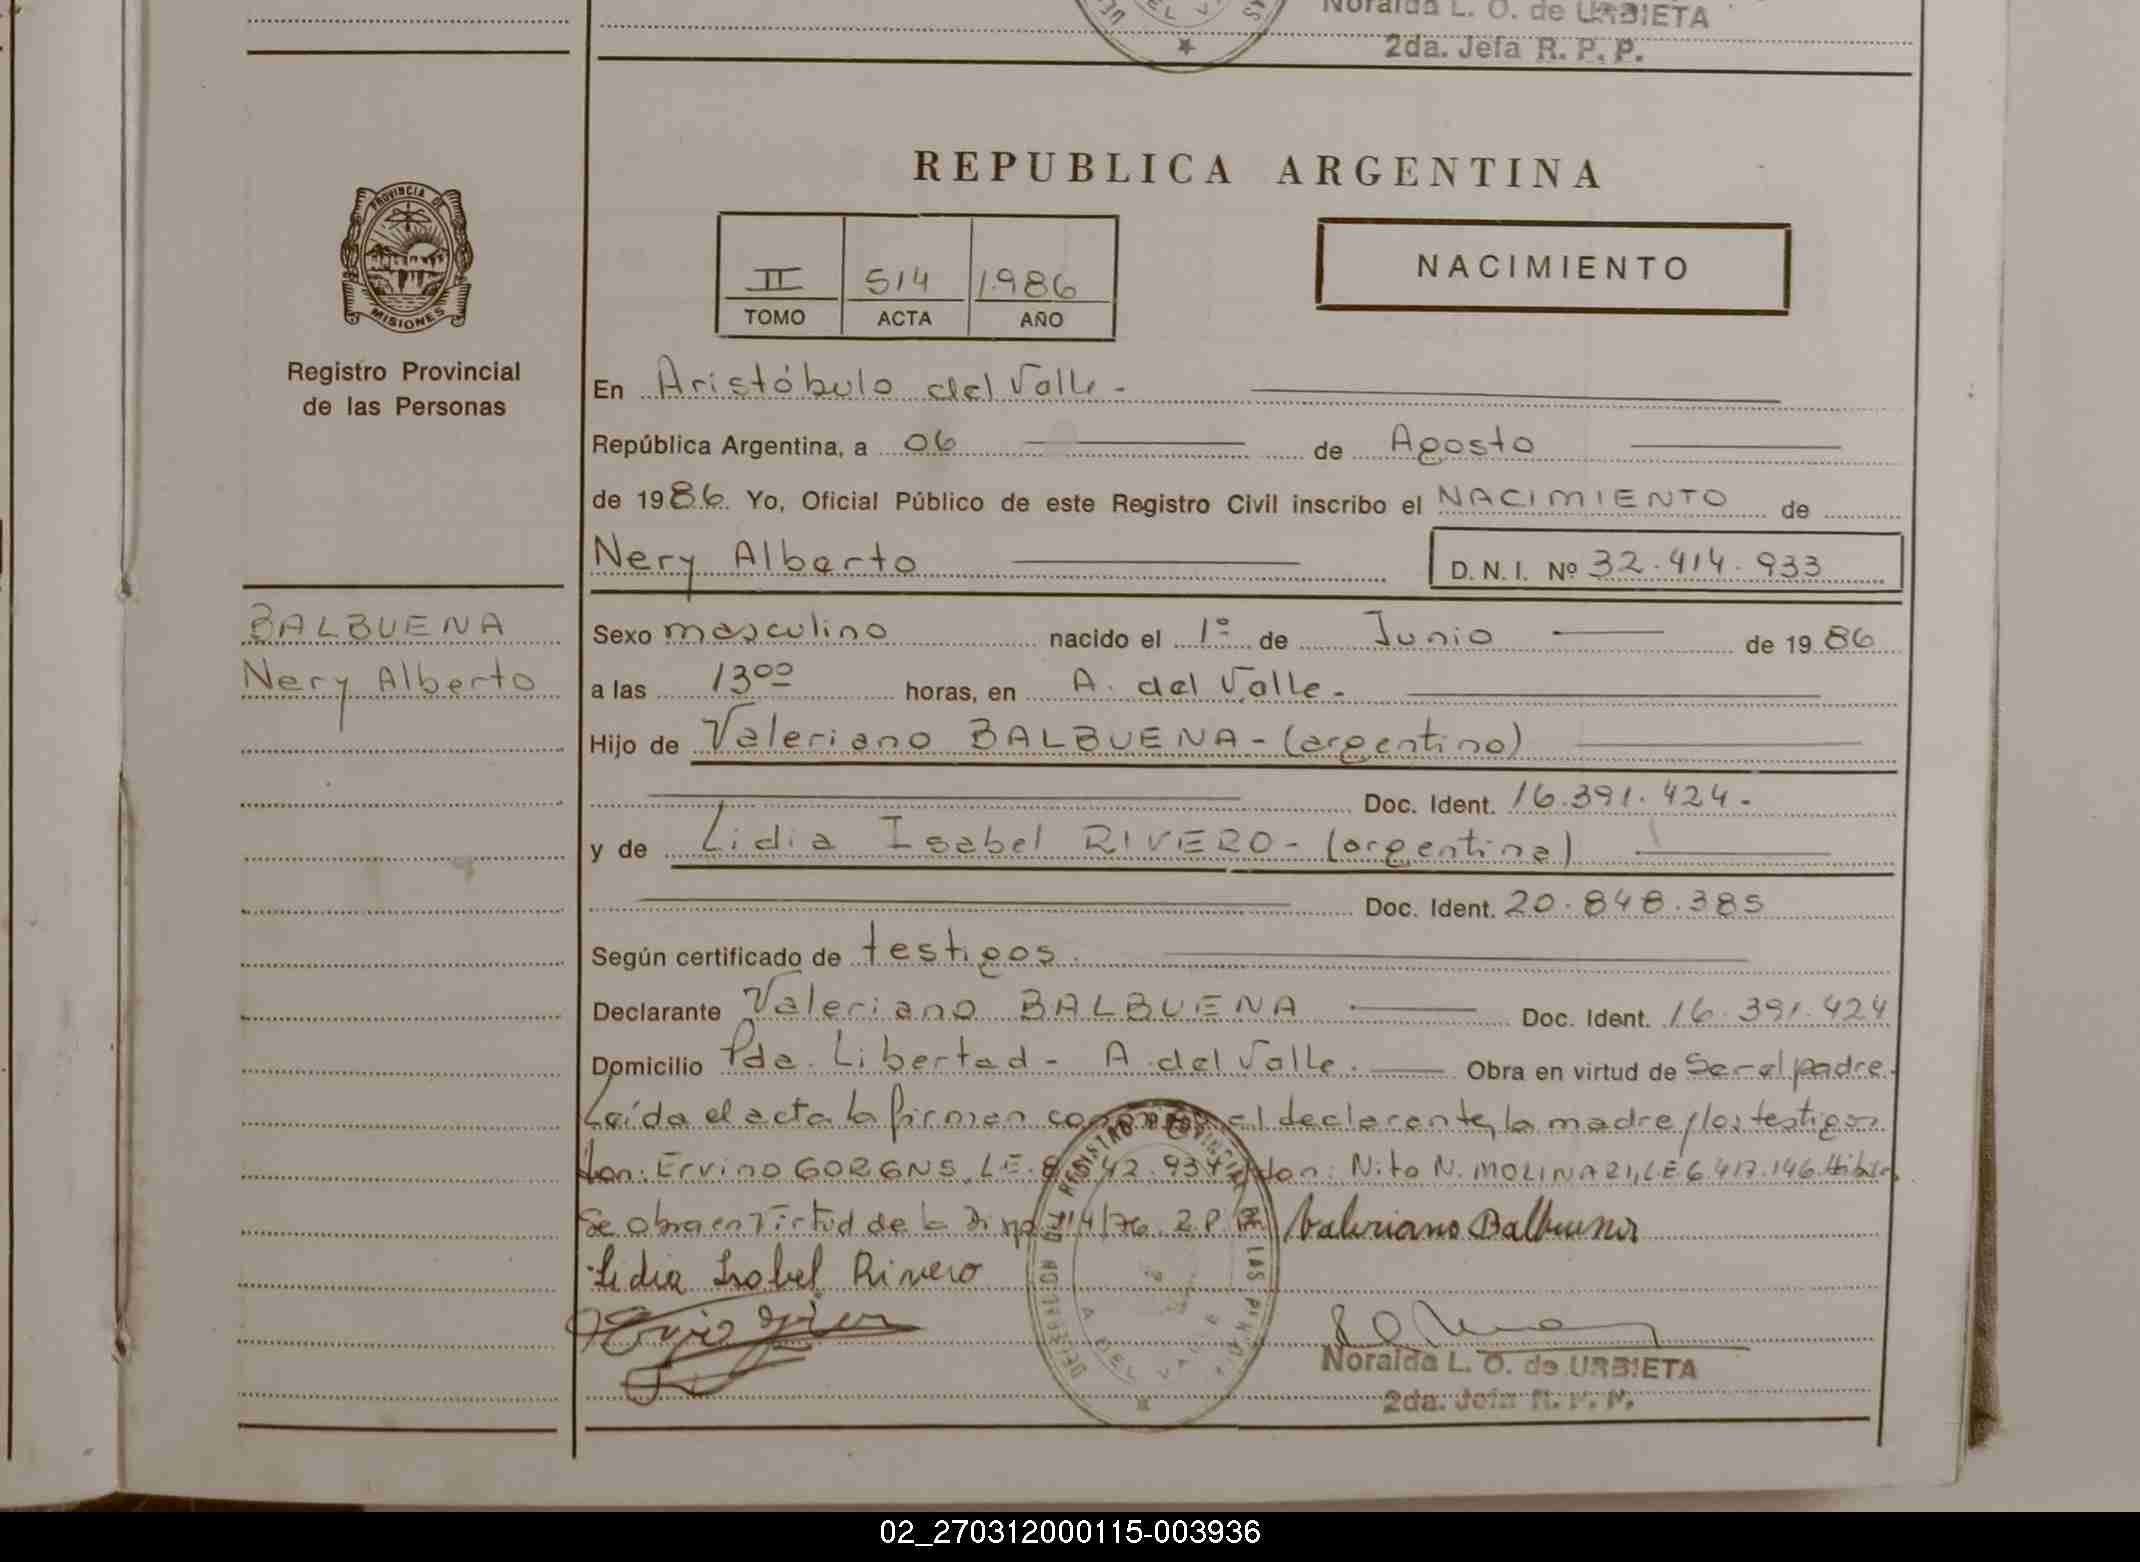 Noralda L. O. de URBIETA
2da. Jefa R. P. P.
REPUBLICA ARGENTINA
PROVINCIA DE
MISIONES
Registro Provincial
de las Personas
II 514 1.986
TOMO ACTA AÑO
NACIMIENTO
En Aristóbulo del Valle -
República Argentina, a 06 de Agosto
de 1986. Yo, Oficial Público de este Registro Civil inscribo el NACIMIENTO de
Nery Alberto D. N. I. Nº 32.414.933
BALBUENA
Nery Alberto
Sexo masculino nacido el 1º de Junio de 1986
a las 13ºº horas, en A. del Valle -
Hijo de Valeriano BALBUENA - (argentino)
Doc. Ident. 16.391.424 -
y de Lidia Isabel RIVERO - (argentina)
Doc. Ident. 20.848.385
Según certificado de testigos.
Declarante Valeriano BALBUENA Doc. Ident. 16.391.424
Domicilio Pda. Libertad - A. del Valle. Obra en virtud de Ser el padre.
Leída el acta la firman el declarante, la madre y los testigos
Don: Ervino GORGNS, L.E. Don: Nito N. MOLINA 21, L.E 6.417.146
Se obra en virtud de la Disp. R.P.P. Valeriano Balbuena
Lidia Isabel Rivero
Noralda L. O. de URBIETA
2da. Jefa R. P. P.
02_270312000115-003936